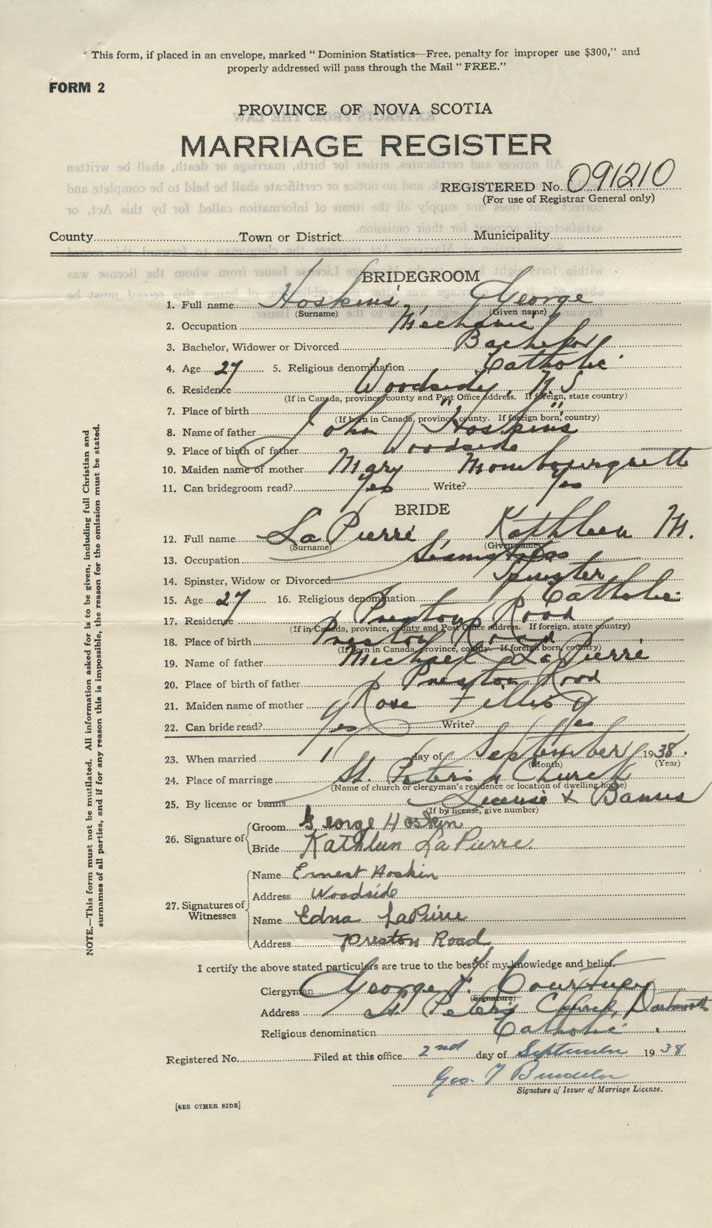 This form, if placed in an envelope, marked "Dominion Statistics—Free, penalty for improper use $300," and
properly addressed will pass through the Mail "FREE."
FORM 2
PROVINCE OF NOVA SCOTIA
MARRIAGE REGISTER
REGISTERED No. 091210
(For use of Registrar General only)
County Town or District Municipality
BRIDEGROOM
1. Full name Hoskins, George
(Surname) (Given name)
2. Occupation Mechanic
3. Bachelor, Widower or Divorced Bachelor
4. Age 27 5. Religious denomination Catholic
6. Residence Woodside, N.S
(If in Canada, province county and Post Office address. If foreign, state country)
7. Place of birth " "
(If born in Canada, province, county. If foreign born, country)
8. Name of father John Hoskins
9. Place of birth of father Woodside
10. Maiden name of mother Mary Mombourquette
11. Can bridegroom read? Yes Write? Yes
BRIDE
12. Full name LaPierre, Kathleen M.
(Surname) (Given name)
13. Occupation Seamstress
14. Spinster, Widow or Divorced Spinster
15. Age 27 16. Religious denomination Catholic
17. Residence Preston Road
(If in Canada, province, county and Post Office address. If foreign, state country)
18. Place of birth Preston Road
(If born in Canada, province, county. If foreign born, country)
19. Name of father Michael LaPierre
20. Place of birth of father Preston Road
21. Maiden name of mother Rose Tellis
22. Can bride read? Yes Write? Yes
23. When married 1 day of September 1938.
(Month) (Year)
24. Place of marriage St. Peter's Church
(Name of church or clergyman's residence or location of dwelling house)
25. By license or banns License & Banns
(If by license, give number)
26. Signature of
Groom George Hoskin
Bride Kathleen LaPierre
27. Signatures of Witnesses
Name Ernest Hoskin
Address Woodside
Name Edna LaPierre
Address Preston Road
I certify the above stated particulars are true to the best of my knowledge and belief.
Clergyman George F. Courtney
(Signature)
Address St Peter's Church, Dartmouth
Religious denomination Catholic.
Registered No. Filed at this office 2nd day of September 1938
Geo. T
Signature of Issuer of Marriage License.
[SEE OTHER SIDE]
NOTE.—This form must not be mutilated. All information asked for is to be given, including full Christian and
surnames of all parties, and if for any reason this is impossible, the reason for the omission must be stated.